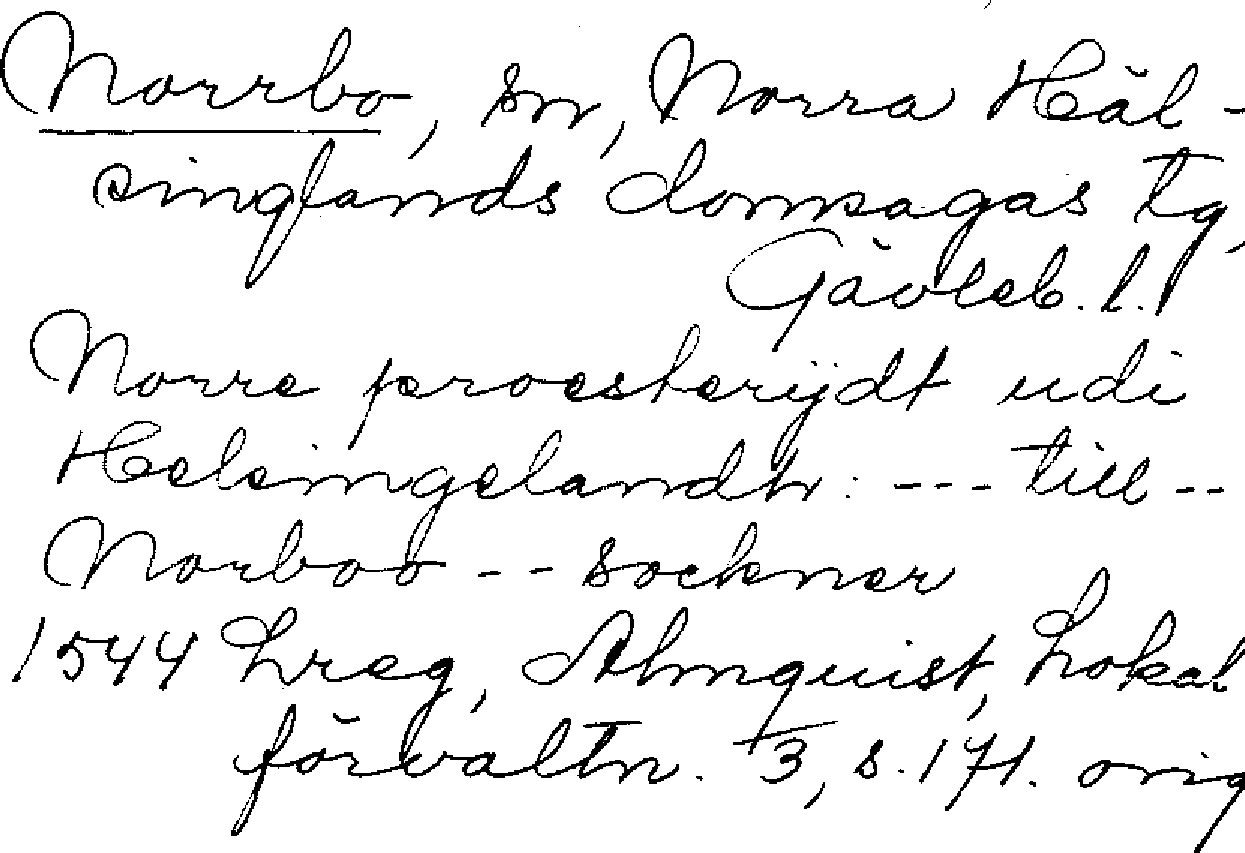 Norrbo, sn, Norra Häl-
singlands domsagas tg,
Gävleb. l.
Norre proesterijdt udi
Helsingelandh: --- till --
Norboo -- sockner
1544 Lreg, Almquist, Lokal
förvaltn. 3, s. 171. orig